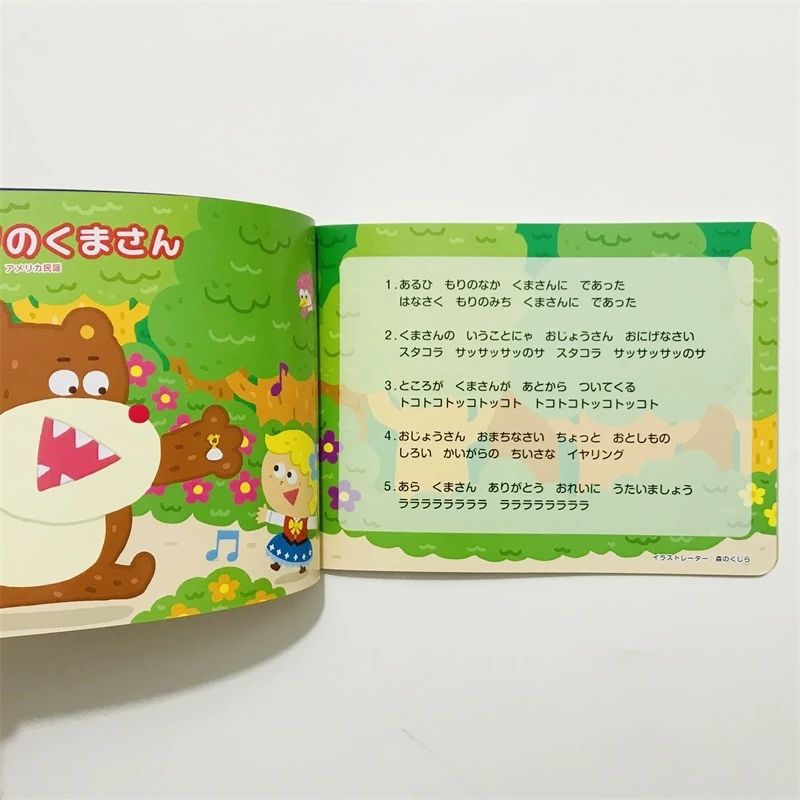 のくまさん
アメリカ民謡
1.あるひ　もりのなか　くまさんに　であった
はなさく　もりのみち　くまさんに　であった
2.くまさんの　いうことにゃ　おじょうさん　おにげなさい
スタコラ　サッサッサッのサ　スタコラ　サッサッサッのサ
3.ところが　くまさんが　あとから　ついてくる
トコトコトッコトッコト　トコトコトッコトッコト
4.おじょうさん　おまちなさい　ちょっと　おとしもの
しろい　かいがらの　ちいさな　イヤリング
5.あら　くまさん　ありがとう　おれいに　うたいましょう
ラララララララ　ラララララララ
イラストレーター：森のくじら